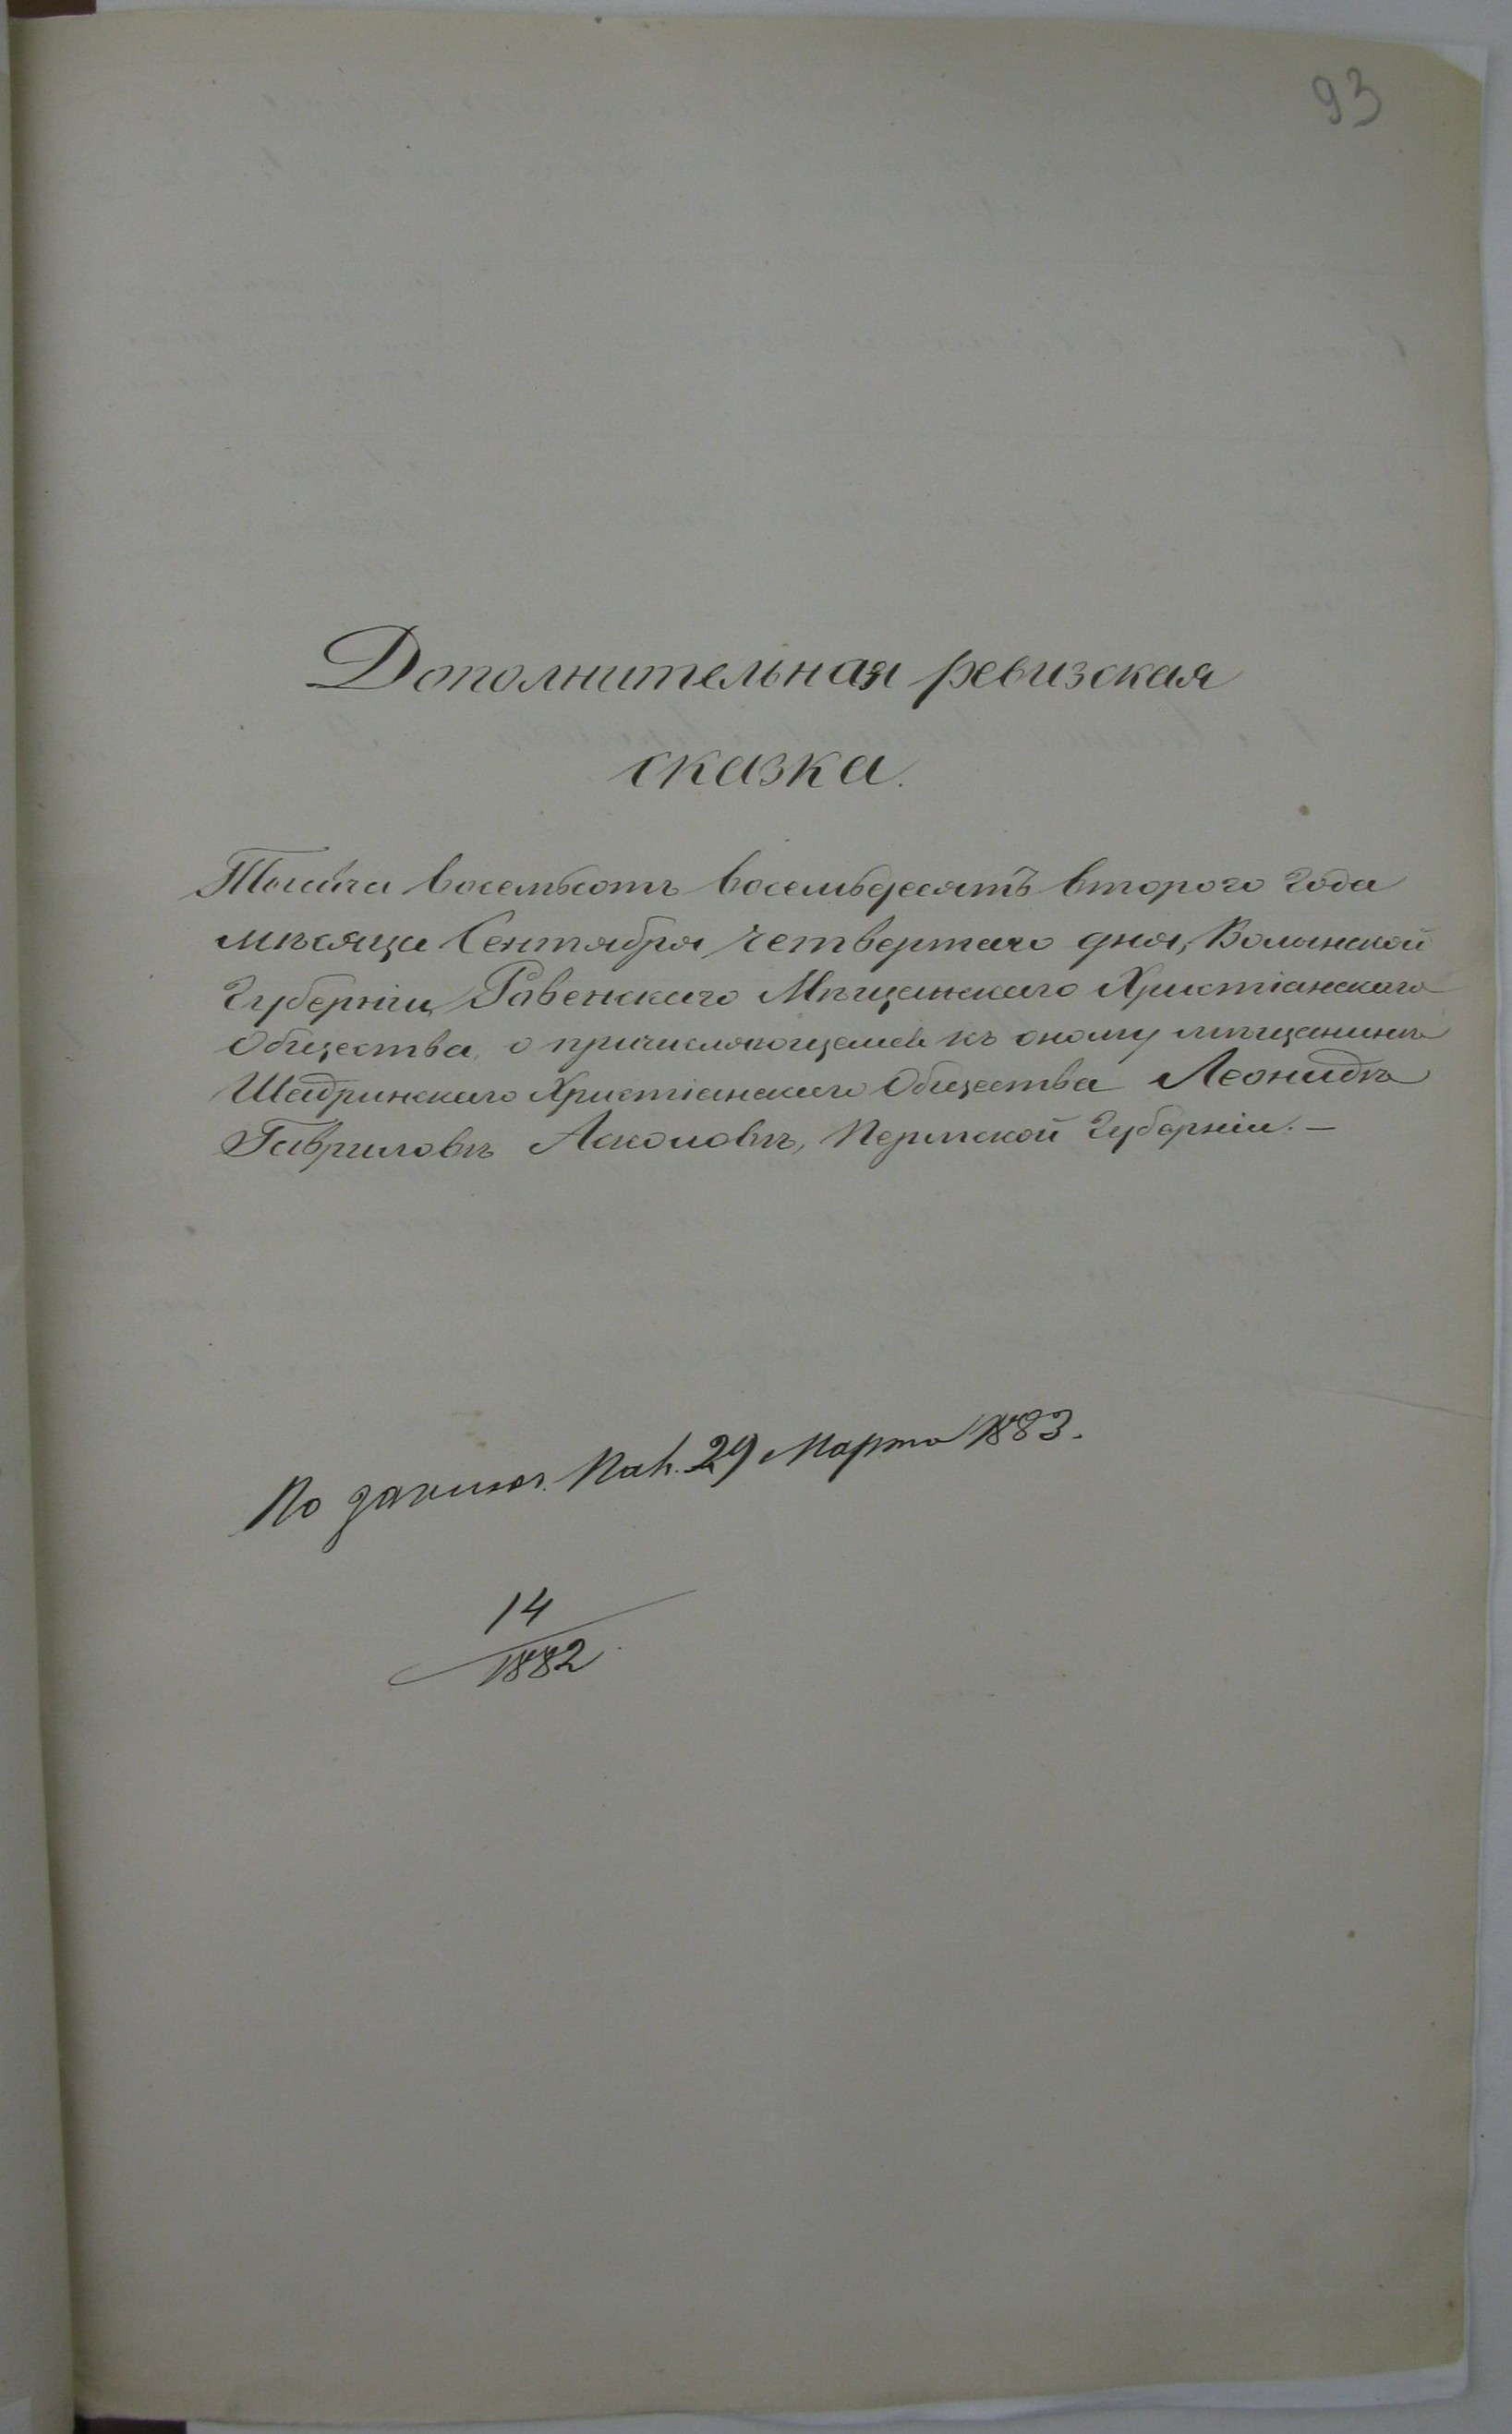 93
Дополнительная ревизская
сказка.
Тысяча восемьсотъ восемьдесятъ второго года
мѣсяца Сентября четвертаго дня, Волынской
Губерніи, Ровенскаго Мѣщанскаго Христіанскаго
Общества, о причисляющемся къ оному мѣщанинѣ
Шадринскаго Христіанскаго Общества Леонидѣ
Гавриловѣ, Пермской Губерніи. —
По 29 Марта 1883.
14
1882